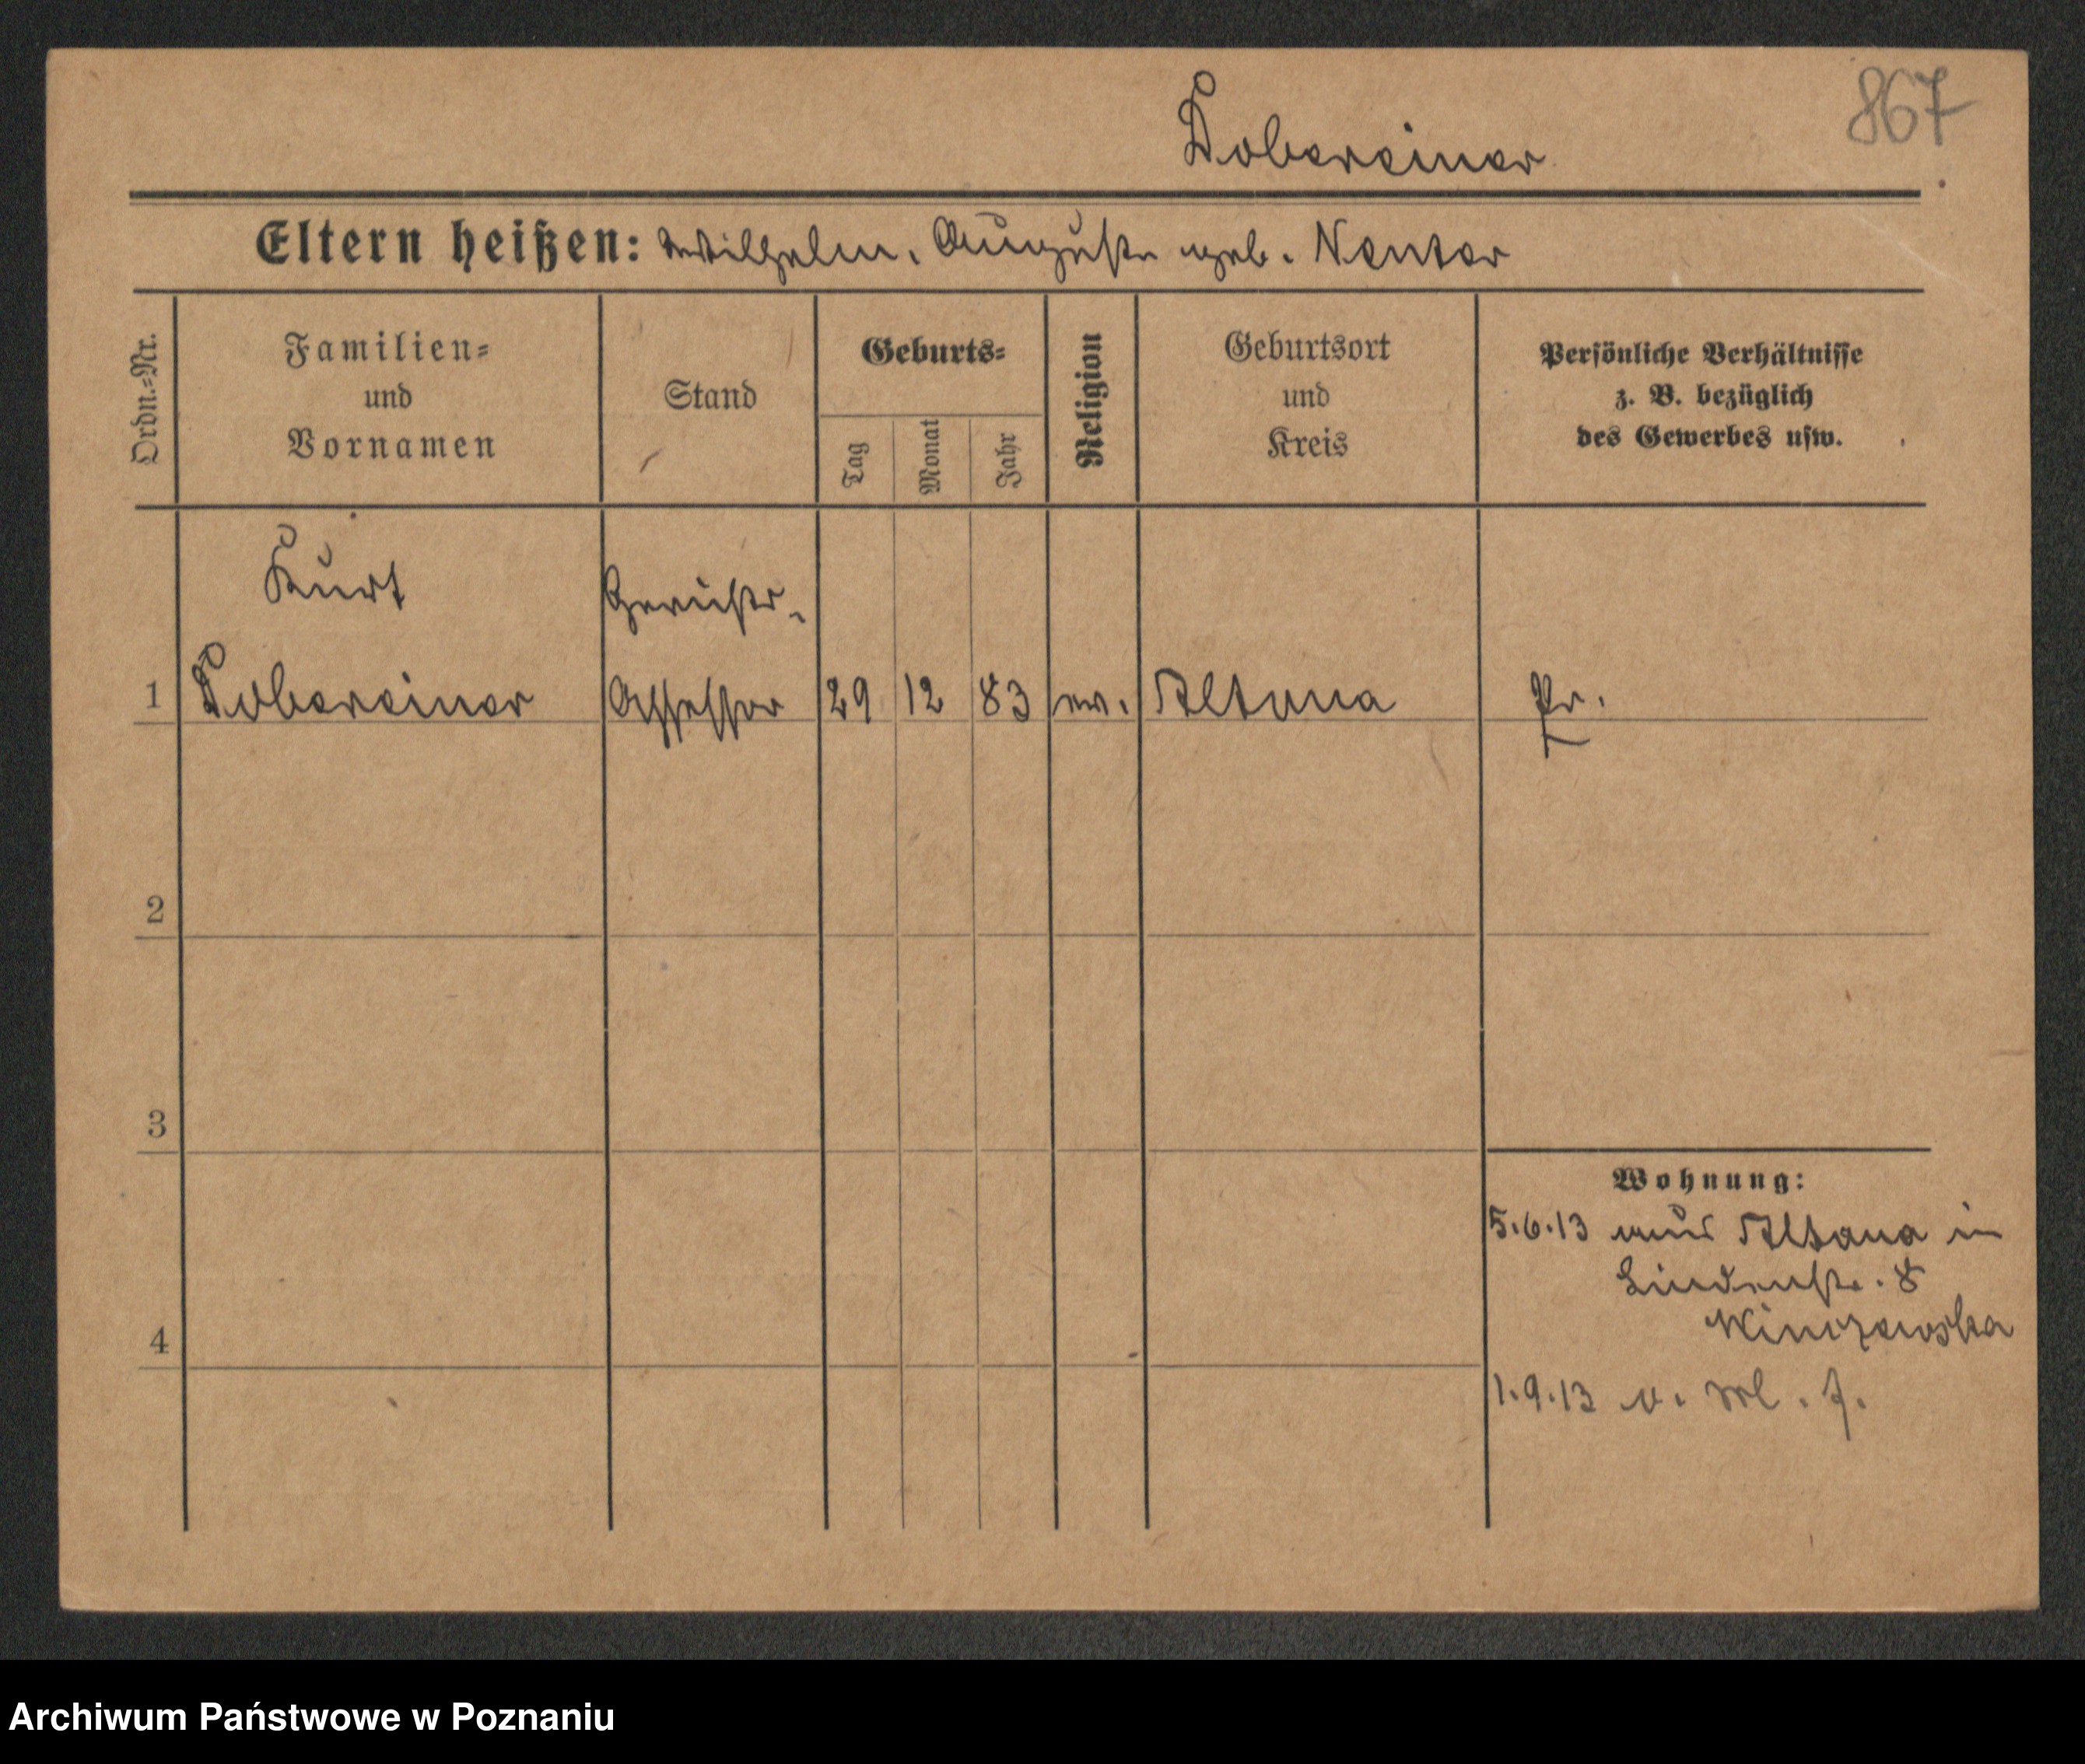 867
Dobereiner
Eltern heißen: Wilhelm, Auguste geb. Nentor
Ordn.-Nr.
Familien- und Vornamen
Stand
Geburts-
Tag
Monat
Jahr
Religion
Geburtsort und Kreis
Persönliche Verhältnisse z. B. bezüglich des Gewerbes usw.
Kurt Gerichts-
1 Dobereiner Assessor 29 12 83 ev. Altona Pr.
2
3
4
Wohnung:
5.6.13 aus Altona in
Lindenstr. 8
1.9.13 v.
Archiwum Państwowe w Poznaniu